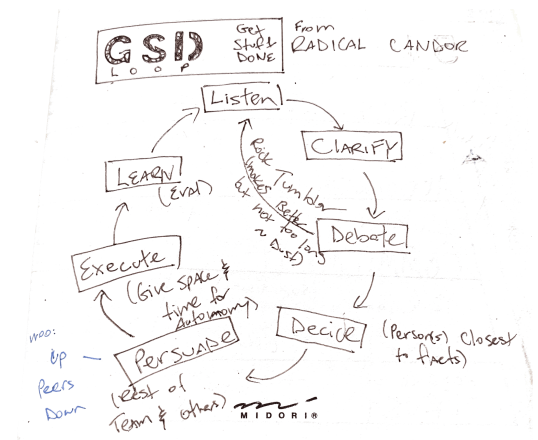 GSD
LOOP
Get
Stuff
DONE
From
RADICAL CANDOR
Listen
CLARIFY
Debate
Rock Tumbler
(makes Better
but not too long
~ Dust)
Decide
(Person(s) Closest
to facts)
PERSUADE
(Rest of
Team & others)
Up
Peers
Down
Execute
(Give space &
time for
Autonomy)
LEARN
(EVAL)
MIDORI®